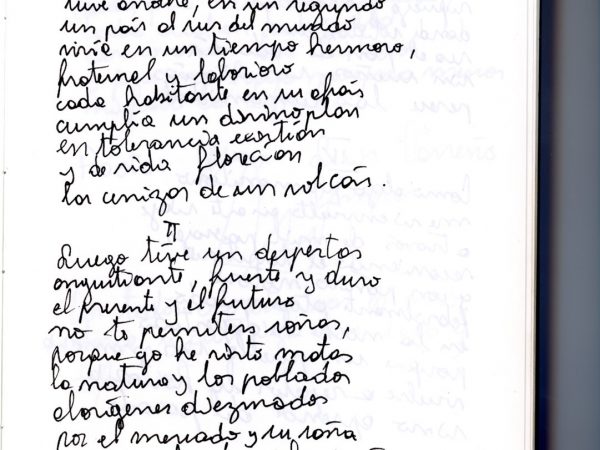 tuve anoche, en un segundo
un país al sur del mundo
vivía en un tiempo hermoso,
fraternal y laborioso
cada habitante en su afán
cumplía un divino plan
en tolerancia cristian
y de vida florecían
las cenizas de un volcán.
II
Luego tuve un despertar
angustiante, fuerte y duro
el presente y el futuro
no te permiten soñar,
porque yo he visto matar
la natura y los poblados
aborígenes diezmados
por el mercado y su saña